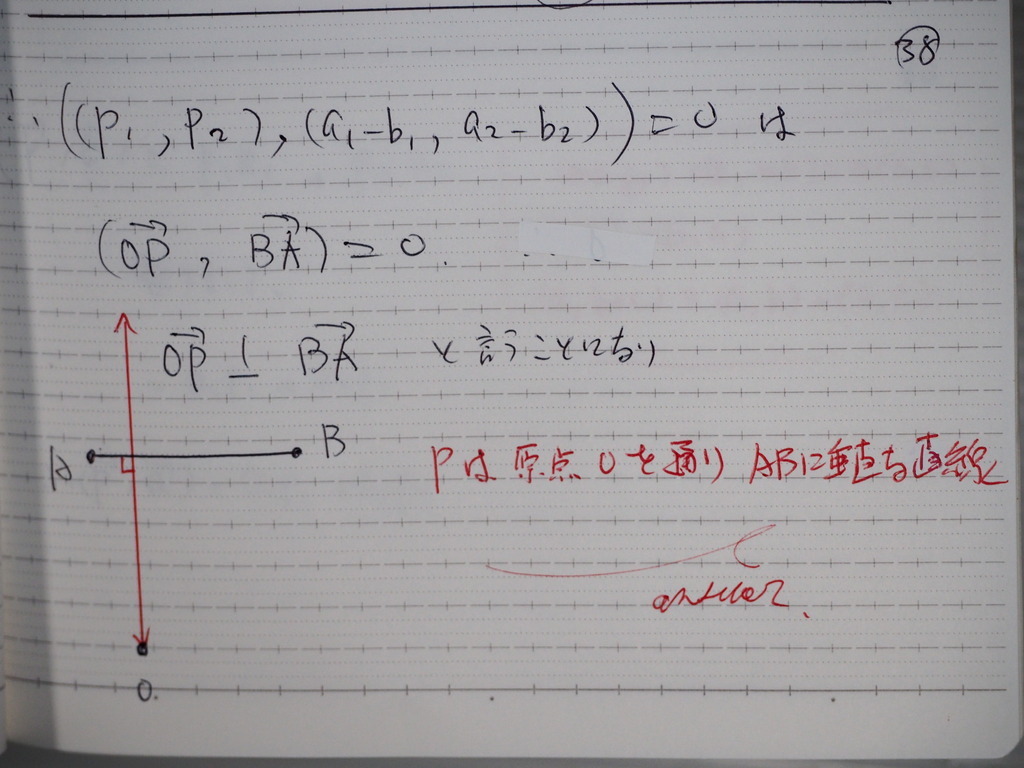 ㊳
∴ ((p₁, p₂), (a₁-b₁, a₂-b₂)) = 0 は
(OP→, BA→) = 0.
OP→ ⊥ BA→ と言うことになり
A B Pは原点Oを通りABに垂直な直線
answer.
O.